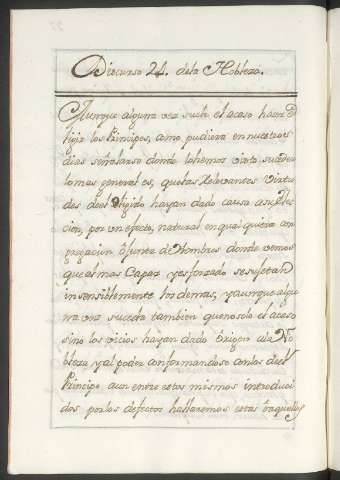 Discurso 24. dela Nobleza.
Aunque alguna vez suele el acaso hacer
ligir los Principes, como pudiera en nuestros
dias señalarse donde lo hemos visto suceder
lo mas general es, que las Relevantes virtu
des del Eligido hayan dado causa a su Elec
cion, por un efecto, natural en qual quiera con
gregacion ô Junta de Hombres donde vemos
que al mas Capaz y esforzado se sujetan
insensiblemente los demas, y aunque algu
na vez suceda tambien que no solo el acaso
sino los vicios hayan dado Origen a la No
bleza y al poder conformandose con los de el
Principe aun entre estos mismos introduci
dos por los defectos hallaremos estas ô aquellas